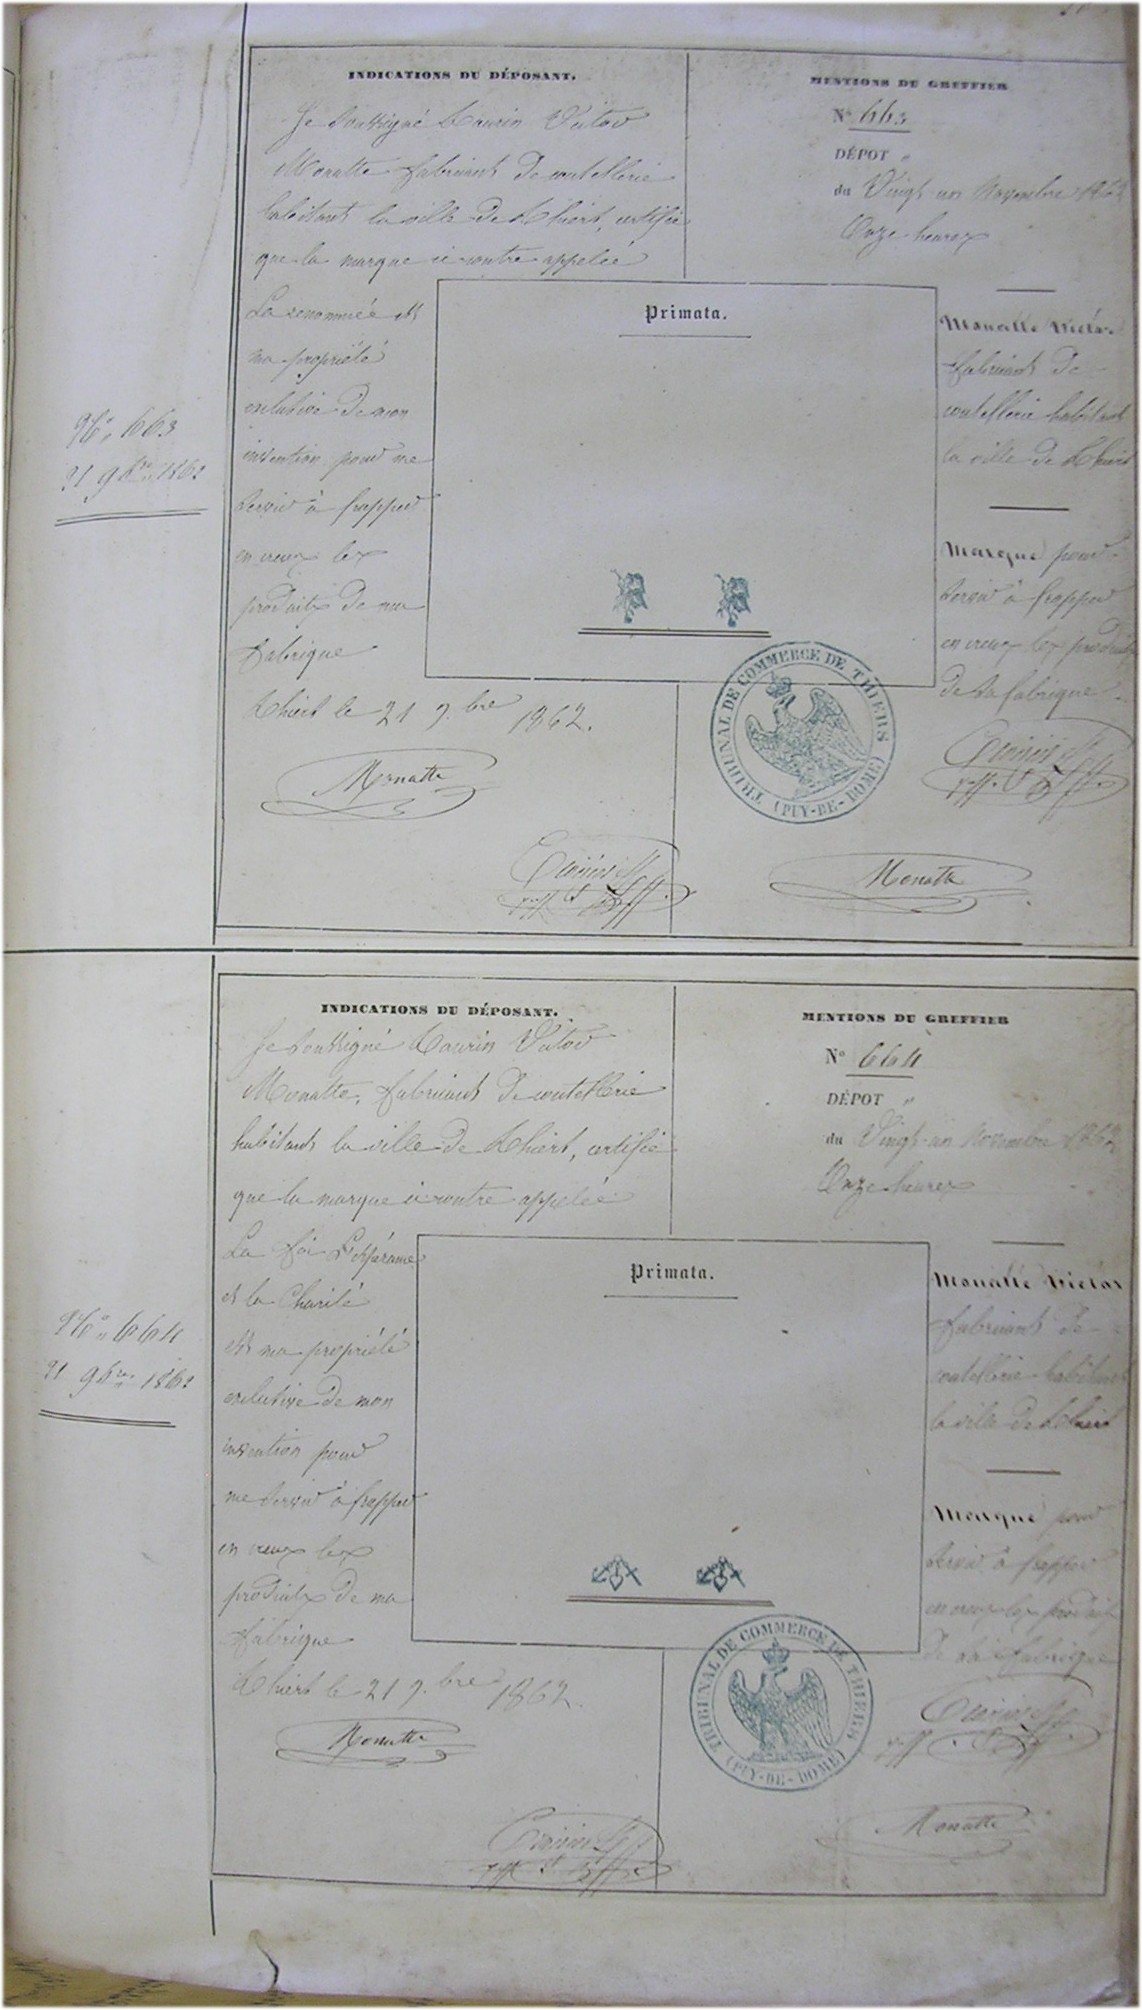 INDICATIONS DU DÉPOSANT.
Je soussigné Victor
Monatte fabricant de coutellerie
habitant la ville de Thiers, certifie
que la marque ci contre appelée
La renommée est
ma propriété
exclusive de mon
invention pour me
servir à frapper
en creux les
produits de ma
fabrique
Thiers le 21 9.bre 1862.
Monatte
MENTIONS DU GREFFIER
N° 663
DÉPOT
du Vingt-un Novembre 1862
Onze heures
Monatte Victor
fabricant de
coutellerie habitant
la ville de Thiers
Marque pour
servir à frapper
en creux les produits
de sa fabrique.
Monatte
Primata.
TRIBUNAL DE COMMERCE DE THIERS
(PUY-DE-DOME)
N° 663
21 9bre 1862
INDICATIONS DU DÉPOSANT.
Je soussigné Victor
Monatte, fabricant de coutellerie
habitant la ville de Thiers, certifie
que la marque ci contre appelée
La foi L'espérance
et la Charité
est ma propriété
exclusive de mon
invention pour
me servir à frapper
en creux les
produits de ma
fabrique
Thiers le 21 9.bre 1862.
Monatte
MENTIONS DU GREFFIER
N° 664
DÉPOT
du Vingt-un Novembre 1862
Onze heures
Monatte Victor
fabricant de
coutellerie habitant
la ville de Thiers
Marque pour
servir à frapper
en creux les produits
de sa fabrique
Monatte
Primata.
TRIBUNAL DE COMMERCE DE THIERS
(PUY-DE-DOME)
N° 664
21 9bre 1862